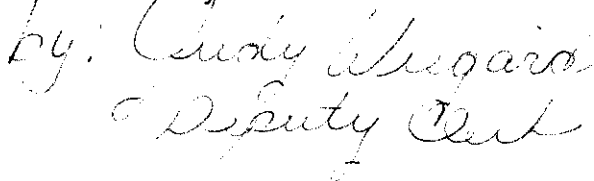 by: Judy Wugard
Deputy Clerk